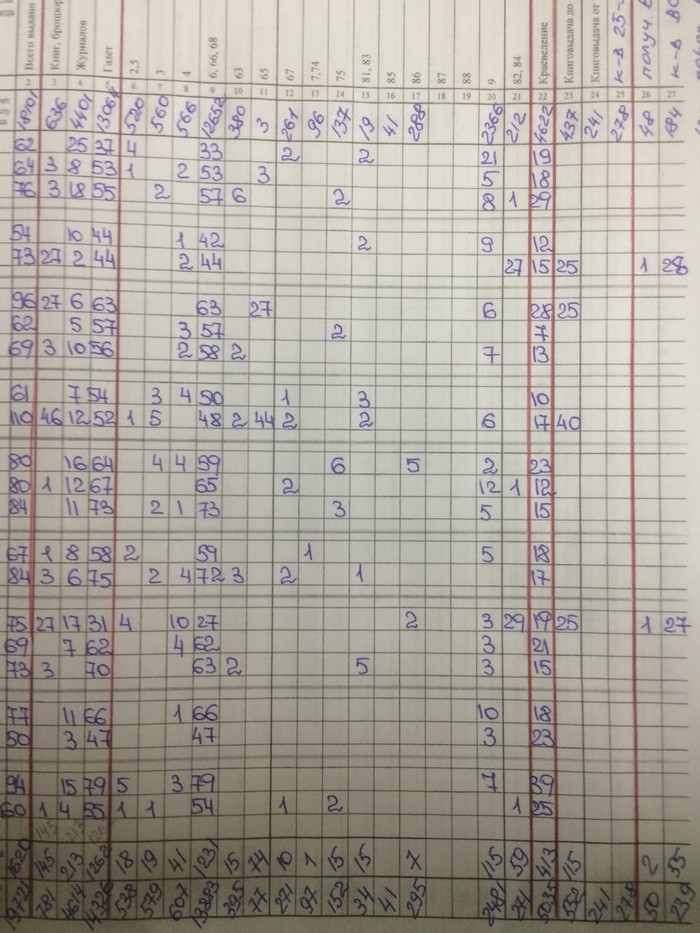 Всего выдано Книг, брошюр Журналов Газет 2,5 3 4 6, 66, 68 63 65 67 7,74 75 81, 83 85 86 87 88 9 82, 84 Краеведение Книговыдача до Книговыдача от н-в 25- получ. н-в
2 3 4 5 6 7 8 9 10 11 12 13 14 15 16 17 18 19 20 21 22 23 24 25 26 27
18101 636 4401 13064 520 560 566 12652 380 3 261 96 137 19 41 288 2366 212 4622 437 241 278 48 184
62 25 37 4 33 2 2 21 19
64 3 8 53 1 2 53 3 5 18
76 3 18 55 2 57 6 2 8 1 29
54 10 44 1 42 2 9 12
73 27 2 44 2 44 27 15 25 1 28
96 27 6 63 63 27 6 28 25
62 5 57 3 57 2 7
69 3 10 56 2 58 2 7 13
61 7 54 3 4 50 1 3 10
110 46 12 52 1 5 48 2 44 2 2 6 17 40
80 16 64 4 4 59 6 5 2 23
80 1 12 67 65 2 12 1 12
84 11 73 2 1 73 3 5 15
67 1 8 58 2 59 1 5 18
84 3 6 75 2 4 72 3 2 1 17
75 27 17 31 4 10 27 2 3 29 19 25 1 27
69 7 62 4 62 3 21
73 3 70 63 2 5 3 15
77 11 66 1 66 10 18
50 3 47 47 3 23
94 15 79 5 3 79 7 39
60 1 4 55 1 1 54 1 2 1 25
1620 145 213 1262 18 19 41 1231 15 74 10 1 15 15 7 115 59 413 115 2 55
19721 781 4614 14326 538 579 607 13883 395 77 271 97 152 34 41 295 2481 271 5035 552 241 278 50 239